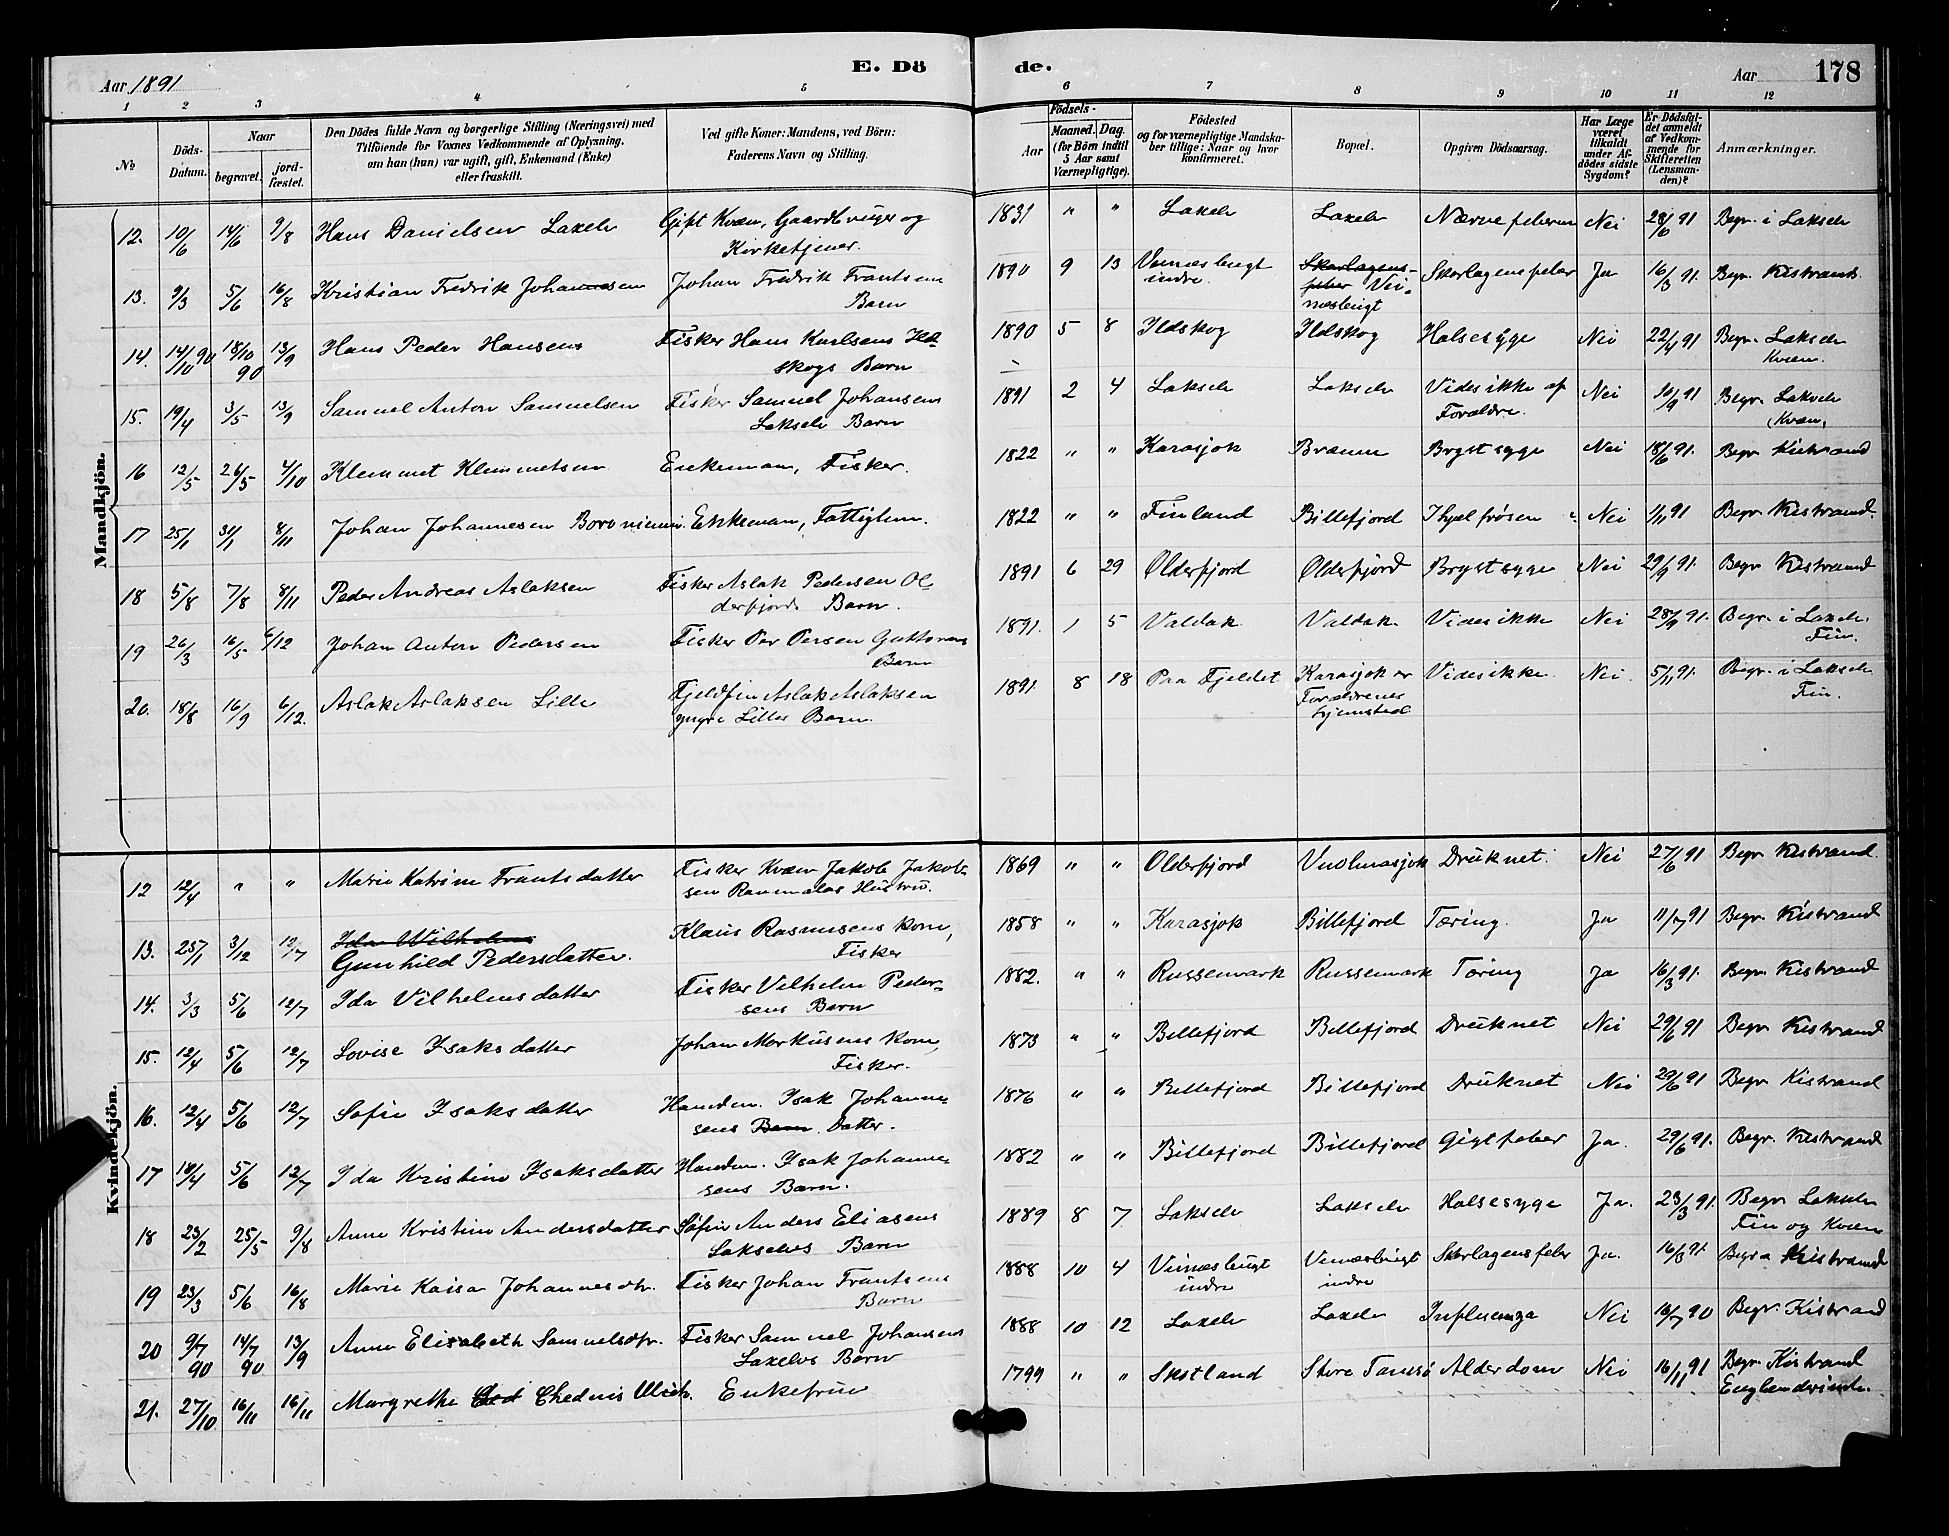 Aar 1891
E. Dö
de.
Aar
178
1 2 3 4 5 6 7 8 9 10 11 12
No
Döds-Datum.
Naar
begravet.
jord-fæstet.
Den Dödes fulde Navn og borgerlige Stilling (Næringsvei) med
Tilföiende for Voxnes Vedkommende af Oplysning,
om han (hun) var ugift, gift, Enkemand (Enke)
eller fraskilt.
Ved gifte Koner: Mandens, ved Börn:
Faderens Navn og Stilling.
Födsels-
Aar
Maaned. Dag.
(for Börn indtil
5 Aar samt
Værnepligtige).
Födested
og for værnepligtige Mandska-
ber tillige: Naar og hvor
konfirmeret.
Bopæl.
Opgiven Dödsaarsag.
Har Læge
været
tilkaldt
under Af-
dödes sidste
Sygdom?
Er Dödsfal-
det anmeldt
af Vedkom-
mende for
Skifteretten
(Lensman-
den)?
Anmærkninger.
Mandkjön.
12. 10/6 14/6 9/8 Hans Danielsen Laxelv Gift Kvæn, Gaardbruger og 1831 " " Laxelv Laxelv Nervefeber Nei 28/6 91 Begr. i Lakselv
Kirketjener.
13. 9/3 5/6 16/8 Kristian Fredrik Johannesen Johan Fredrik Frantsens 1890 9 13 Vuinæsbugt Skarlagens- Skarlagensfeber Ja 16/3 91. Begr. Kistrand
Barn indre. feber Vui-
næsbugt
14. 14/10 90 18/10 90 13/9 Hans Peder Hansens Fisker Hans Karlsens Ild- 1890 5 8 Ildskog Ildskog Halsesyge Nei 22/4 91 Begr. Lakselv
skogs Barn Kvæn.
15. 19/4 3/5 13/9 Samuel Anton Samuelsen Fisker Samuel Johansens 1891 2 4 Lakselv Lakselv Vides ikke af Nei 10/9 91 Begr. Lakselv
Lakselv Barn Forældre. Kvæn.
16 12/5 26/5 4/10 Klemmet Klemmetsen Enkemann, Fisker. 1822 " " Karasjok Brænne Brystsyge Nei 18/6 91. Begr Kistrand
17 25/1 31/1 8/11 Johan Johannesen Boroniemi. Enkemann, Fattiglem. 1822 " " Finland Billefjord Ihjelfrøsen Nei 1/11 91 Begr. Kistrand.
18 5/8 7/8 8/11 Peder Andreas Aslaksen Fisker Aslak Pedersen Ol- 1891 6 29 Olderfjord Olderfjord Brystsyge Nei 29/9 91. Begr Kistrand
derfjords Barn.
19 26/3 16/5 6/12 Johan Anton Pedersen Fisker Per Persen Guttorms 1891. 1 5 Valdak Valdak Vides ikke Nei 28/9 91. Begr. i Lakselv.
Barn Fin.
20. 18/8 16/9 6/12. Aslak Aslaksen Lille Fjeldfin Aslak Aslaksen 1891. 8 18 Paa Fjeldet Karasjok er Vides ikke. Nei. 5/11 91. Begr. i Lakselv
yngre Lilles Barn. Forældrenes Fin.
Hjemsted.
Kvindekjön.
12 12/4 " " Marie Katrine Frantsdatter Fisker Kvæn Jakob Jakob- 1869 " " Olderfjord Vuolmasjok Druknet. Nei 27/6 91 Begr Kistrand.
sen Raumalas Hustru.
13. 25/1 3/12 12/7 Ida Wilhelms Klaus Rasmusens Kone, 1858 " " Karasjok Billefjord Tæring. Ja 11/7 91 Begr. Kistrand
Gunhild Pedersdatter. Fisker
14. 3/3 5/6 12/7 Ida Vilhelmsdatter Fisker Vilhelm Peder- 1882. " " Russemark Russemark Tæring Ja 16/3 91. Begr Kistrand
sens Barn
15. 12/4 5/6 12/7 Lovise Isaksdatter Johan Markusens Kone, 1873 " " Billefjord Billefjord Druknet Nei 29/6 91 Begr Kistrand
Fisker.
16. 12/4 5/6 12/7 Sofie Isaksdatter Handsm. Isak Johanne- 1876 " " Billefjord Billefjord Druknet Nei 29/6 91 Begr Kistrand
sens Barn. Datter.
17 18/4 5/6 12/7 Ida Kristine Isaksdatter Handsm. Isak Johanne- 1882 " " Billefjord Billefjord Gigtfeber Ja. 29/6 91. Begr. Kistrand
sens Barn.
18 23/2 25/5 9/8 Anne Kristine Andersdatter Søfin Anders Eliasens 1889 8 7 Lakselv Lakselv Halsesyge Ja. 23/3 91. Begr Lakselv
Lakselvs Barn Fin og Kvæn
19 23/3 5/6 16/8 Marie Kaisa Johannesdtr. Fisker Johan Frantsens 1888 10 4 Vuinæsbugt Vuinæsbugt Skarlagensfeber Ja. 16/3 91. Begr. Kistrand
Barn indre indre
20 9/7 90 14/7 90 13/9 Anne Elisabeth Samuelsdtr. Fisker Samuel Johansens 1888 10 12 Laxelv Laxelv Influenza Nei 16/7 90 Begr. Kistrand
Laxelvs Barn
21. 27/10. 16/11 16/11 Margrethe Chednis Enkefrue 1799 " " Skotland Store Tamsø Alderdom Nei 16/11 91 Begr. Kistrand
Englænderinde.